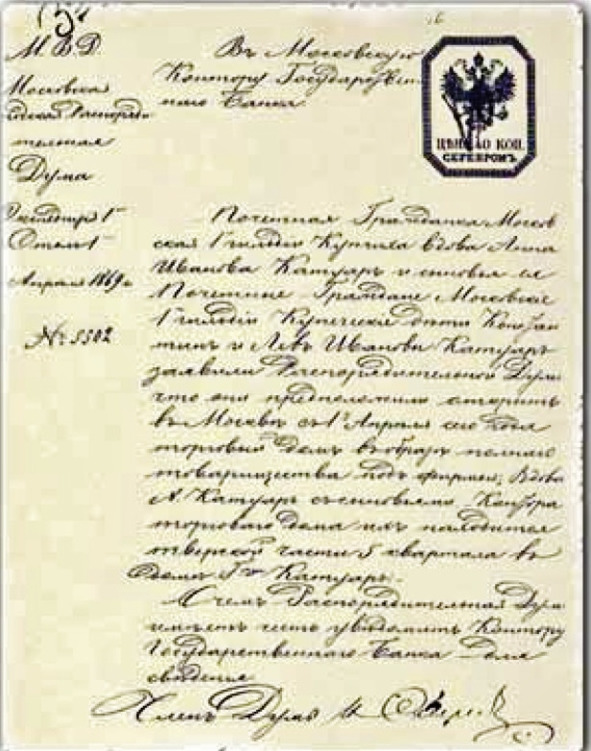 М. В. Д.
Московская
Городская Распоряди
тельная
Дума
Отдел 1
Апреля 1869 г
№ 5502
Въ Московскую
Контору Государствен
наго Банка
ЦѢНА 40 КОП.
СЕРЕБРОМЪ
Почетная Гражданка Москов
ская 1 гильдіи Купчиха вдова Анна
Иванова Катуаръ и сыновья ее
Почетные Граждане Московскіе
1 гильдіи Купеческіе дѣти Констан
тинъ и Левъ Ивановы Катуаръ
заявили Распорядительной Думѣ
что они предположили открыть
въ Москвѣ съ 1го Апрѣля сего года
торговый домъ въ образѣ полнаго
товарищества подъ фирмою: Вдова
А. Катуаръ съ сыновьями. Контора
торговаго дома ихъ находится
тверской части 5 квартала въ
домѣ Гг. Катуаръ.
О чемъ Распорядительная Дума
имѣетъ честь увѣдомить Контору
Государственнаго Банка для
свѣденія
Членъ Думы